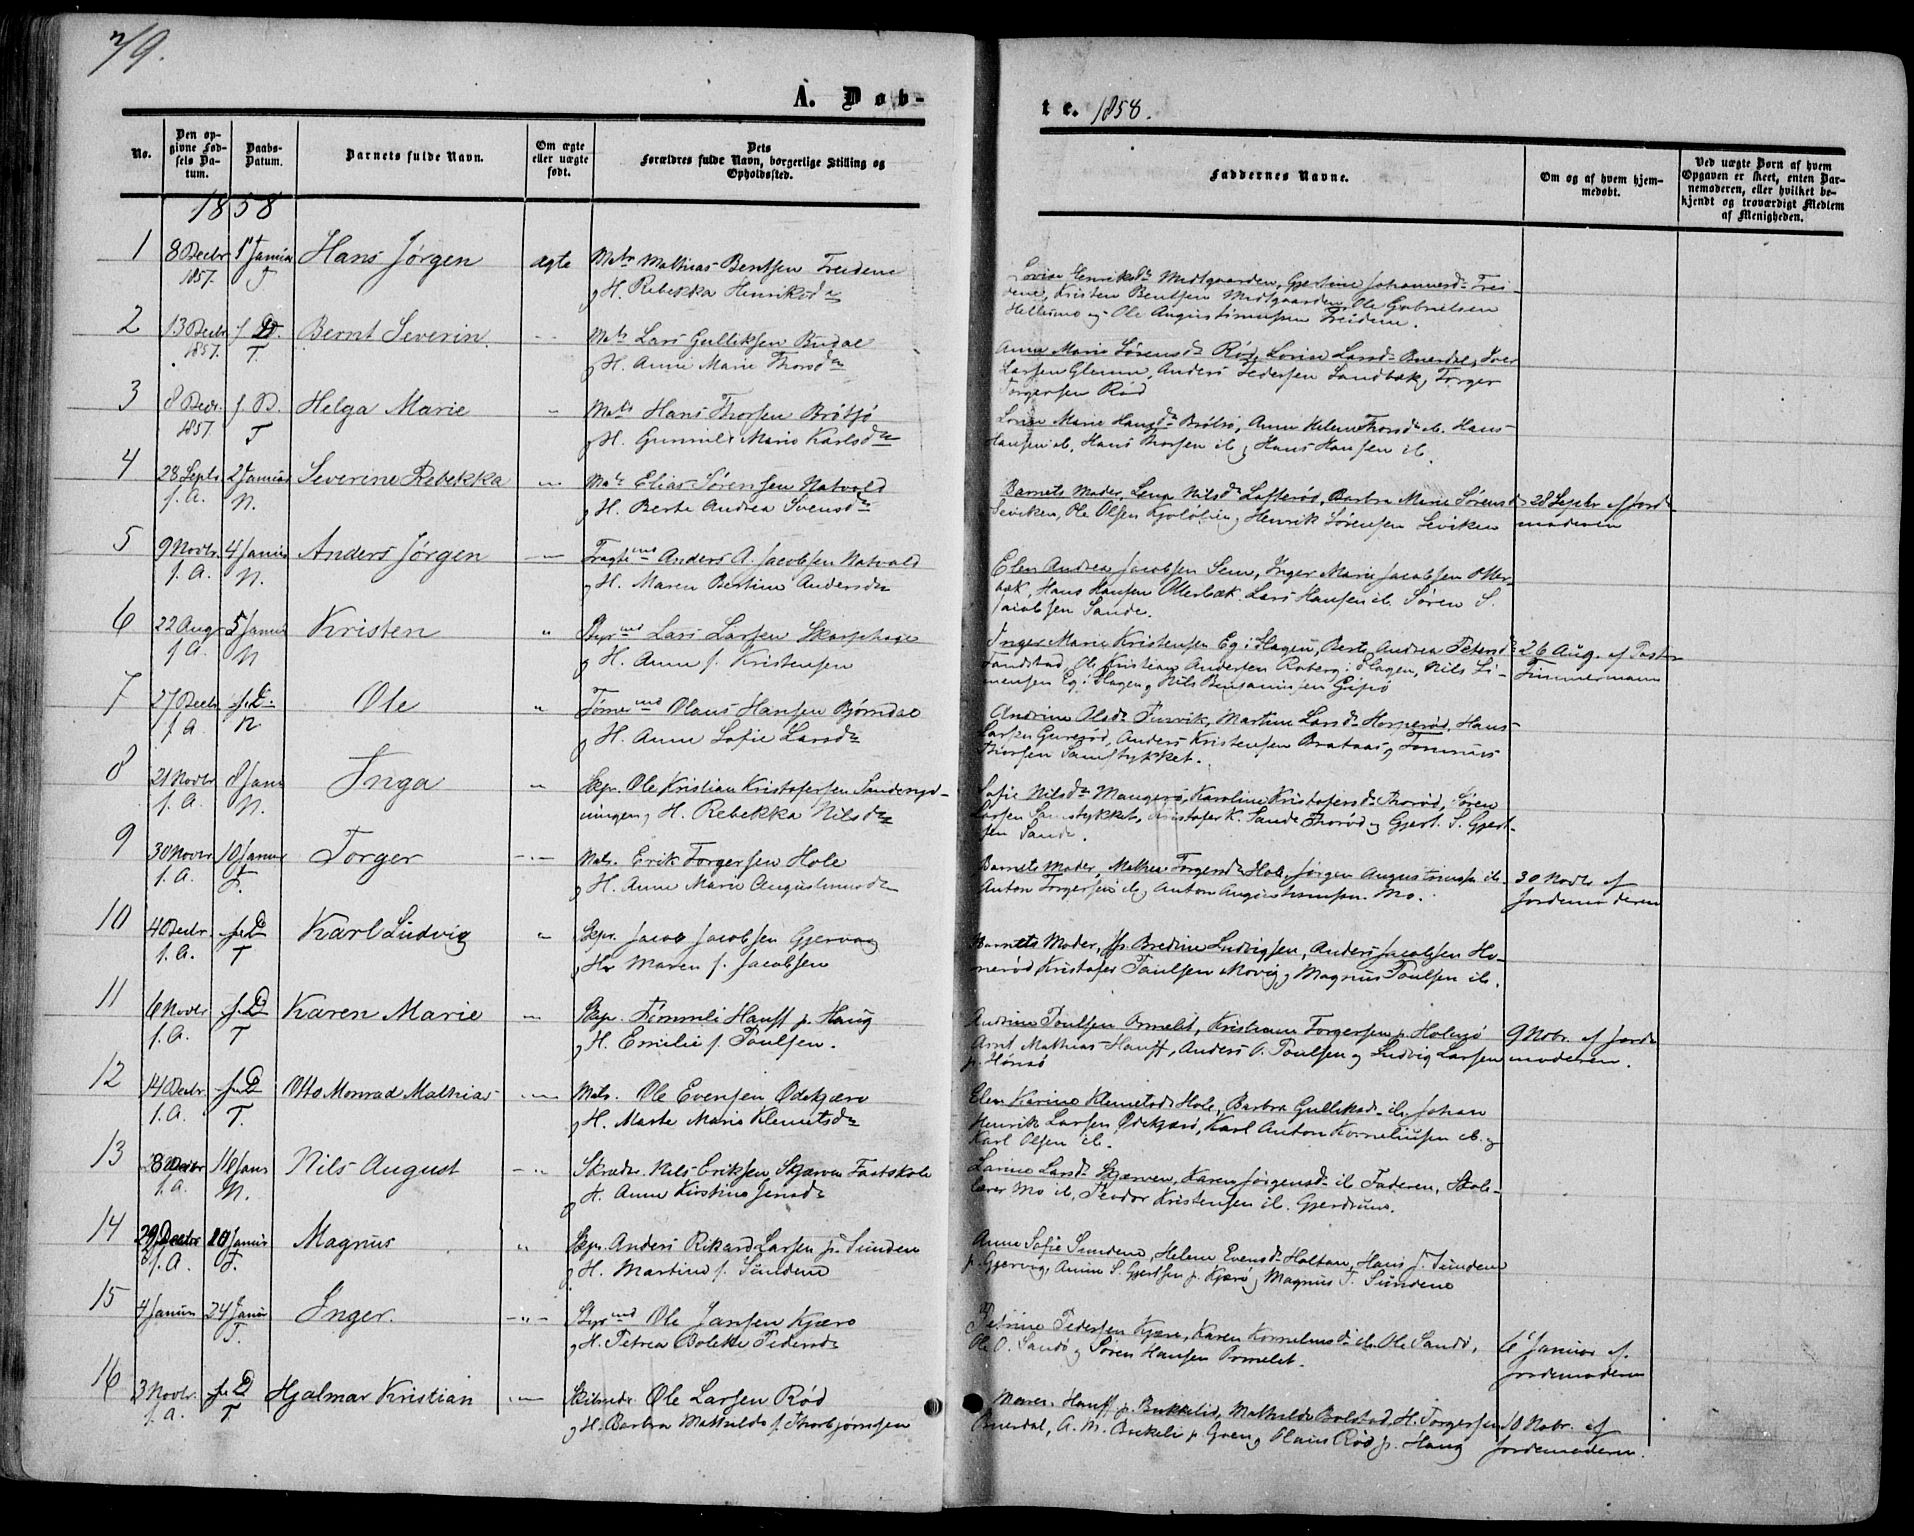 79.
A. Døb-
te. 1858.
No.
Den op-
givne Fød-
sels Da-
tum.
Daabs-
Datum.
Barnets fulde Navn.
Om ægte
eller uægte
født.
Dets
Forældres fulde Navn, borgerlige Stilling og
Opholdssted.
Faddernes Navne.
Om og af hvem hjem-
medøbt.
Ved uægte Børn af hvem
Opgaven er skeet, enten Bar-
nemoderen, eller hvilket be-
kjendt og troværdigt Medlem
af Menigheden.
1858
1 8 Decbr 1 Januar Hans Jørgen ægte Matr Mathias Bentsen Treidene
1857. T og H. Rebekka Henriksdr
Lovise Henriksdr Midtgaarden, Gjertine Johannesdr Trei-
dene, Kristen Bentsen Midtgaarden, Ole Gabrielsen
Hellumo og Ole Augustinussen Treidene.
2 13 Decbr f. D. Bernt Severin Mats Lars Gulliksen Budal
1857. T. og H. Anne Marie Thorsdr
Anne Marie Sørensdr Rød, Lovise Larsdr Buerdal, Iver
Larsen Glenne, Anders Pedersen Sandbæk, Torger
Torgersen Rød
3 8 Decbr. f. D. Helga Marie Mats Hans Thorsen Brøtsø
1857. T og H. Gunnild Marie Karlsdr
Lovise Marie Hansdr Brøtsø, Anne Helene Thorsdr ib. Hans
Hansen ib. Hans Thorsen ib og Hans Hansen ib.
4 28 Septr. 2 Januar Severine Rebekka Mats Elias Sørensen Natvold
f. A. N. og H. Berte Andrea Svensdr
Barnets Moder, Lena Nilsdr Lofterød, Barbra Marie Sørensdr
Seviken, Ole Olsen Kjoløbie og Henrik Sørensen Seviken
28 Septbr af Jorde
moderen
5 9 Novbr 4 Januar Anders Jørgen Fragtemd Anders A. Jacobsen Natvold
f. A. N. og H. Maren Bertine Andersdr
Elen Andrea Jacobsen Sem, Inger Marie Jacobsen Otter-
bæk, Hans Hansen Otterbæk. Lars Hansen ib. Søren S.
Jacobsen Sande.
6 22 Augr 5 Januar Kristen Styrmd Lars Larsen Skarphage
f. A. N og H. Anne f. Kristensen
Inger Marie Kristensen Eg i Slagen, Berte Andrea Petersdr
Sandstad, Ole Kristian Andersen Roberg i Slagen, Nils Si-
mensen Eg i Slagen og Nils Benjaminsen Gipø
26 Aug. af Pastor
Timmermann
7 27 Decbr f. D. Ole Tømmermd Olaus Hansen Bjørndal
f. A. N og H. Anne Sofie Larsdr
Andrine Olsdr Furvik, Martine Larsdr Horperød, Hans
Larsen Gurerød, Anders Kristensen Brataas og Tommas
Thorsen Samstykket.
8 21 Novbr 8 Janr Inga Skpr. Ole Kristian Kristofersen Sandengd-
f. A. N. ningen, og H. Rebekka Nilsdr
Sofie Nilsdr Mangerø, Karoline Kristofersdr Thorød, Søren
Larsen Samstykket, Kristofer K. Sande Thorød og Gjert S. Gjert-
sen Sande.
9 30 Novbr 10 Januar Torger Mats. Erik Torgersen Hole
f. A. T. og H. Anne Marie Augustinusdr
Barnets Moder, Mathea Torgersdr Hole, Jørgen Augustinussen ib.
Anton Torgersen ib og Anton Augustinussen Mo.
30 Novbr af
Jordemoderen
10 4 Decbr. f. D Karl Ludvig Skpr. Jacob Jacobsen Gjervaag
f. A. T og H. Maren f. Jacobsen
Barnets Moder, Jfr Bredine Ludvigsen, Anders Jacobsen Ho-
nerød Kristofer Paulsen Movig og Magnus Paulsen ib.
11 6 Novbr f. D Karen Marie Skpr. Timmli Hanff p. Haug
f. A. T og H. Emilie f. Poulsen.
Andrine Poulsen Ormelet, Kristiane Torgersen p. Holmsø
Arnt Mathias Hanff, Anders O. Poulsen og Ludvig Larsen
p. Hønsø
9 Nobr. af Jorde
moderen.
12 14 Decbr f. D Otto Monrad Mathias Mats. Ole Evensen Ødekjære
f. A. T. og H. Marte Marie Klemetsdr
Elen Karine Klemetsdr Hole, Barbra Gulliksdr ib, Johan
Henrik Larsen Ødekjære, Karl Anton Korneliussen ib. og
Karl Olsen ib.
13 8 Decbr 16 Janr Nils August Skrædr. Nils Eriksen Skjærven Fastskole
f. A. N. og H. Anne Kirstine Jensdr
Larine Larsdr Skjærven, Karen Jørgensdr ib Faderen, Skole-
lærer Mo ib, Teodor Kristensen ib. Gjerdrum.
14 29 Decbr 10 Januar Magnus Skpr. Anders Rikard Larsen p. Sundene
f. A. T. og H. Martine f. Sundene
Anne Sofie Sundene, Helene Evensdr Holtan, Hans J. Sundene
p. Gjervaag, Anine S. Gjertsen p. Kjærø og Magnus T. Sundene
15 4 Januar 24 Januar Inger. Styrmd Ole Jansen Kjære
T. og H. Petrea Bolette Pedersdr
Petrine Pedersen Kjære, Karen Kornelinusdr ib. Ole Sandø,
Ole O. Sandø og Søren Hansen Ormelet.
6 Januar af
Jordemoderen
16 3 Novbr. f. D Hjalmar Kristian Skibsredr. Ole Larsen Rød
f. A. T og H. Barbra Mathilde f. Thorbjørnsen
Maren Hanff p. Bukkelid, Mathilde Bolstad, H. Torgersen
Buerdal, A. M. Bekkeli p. Goen og Olaus Rød p. Haug
10 Nobr. af
Jordemoderen.